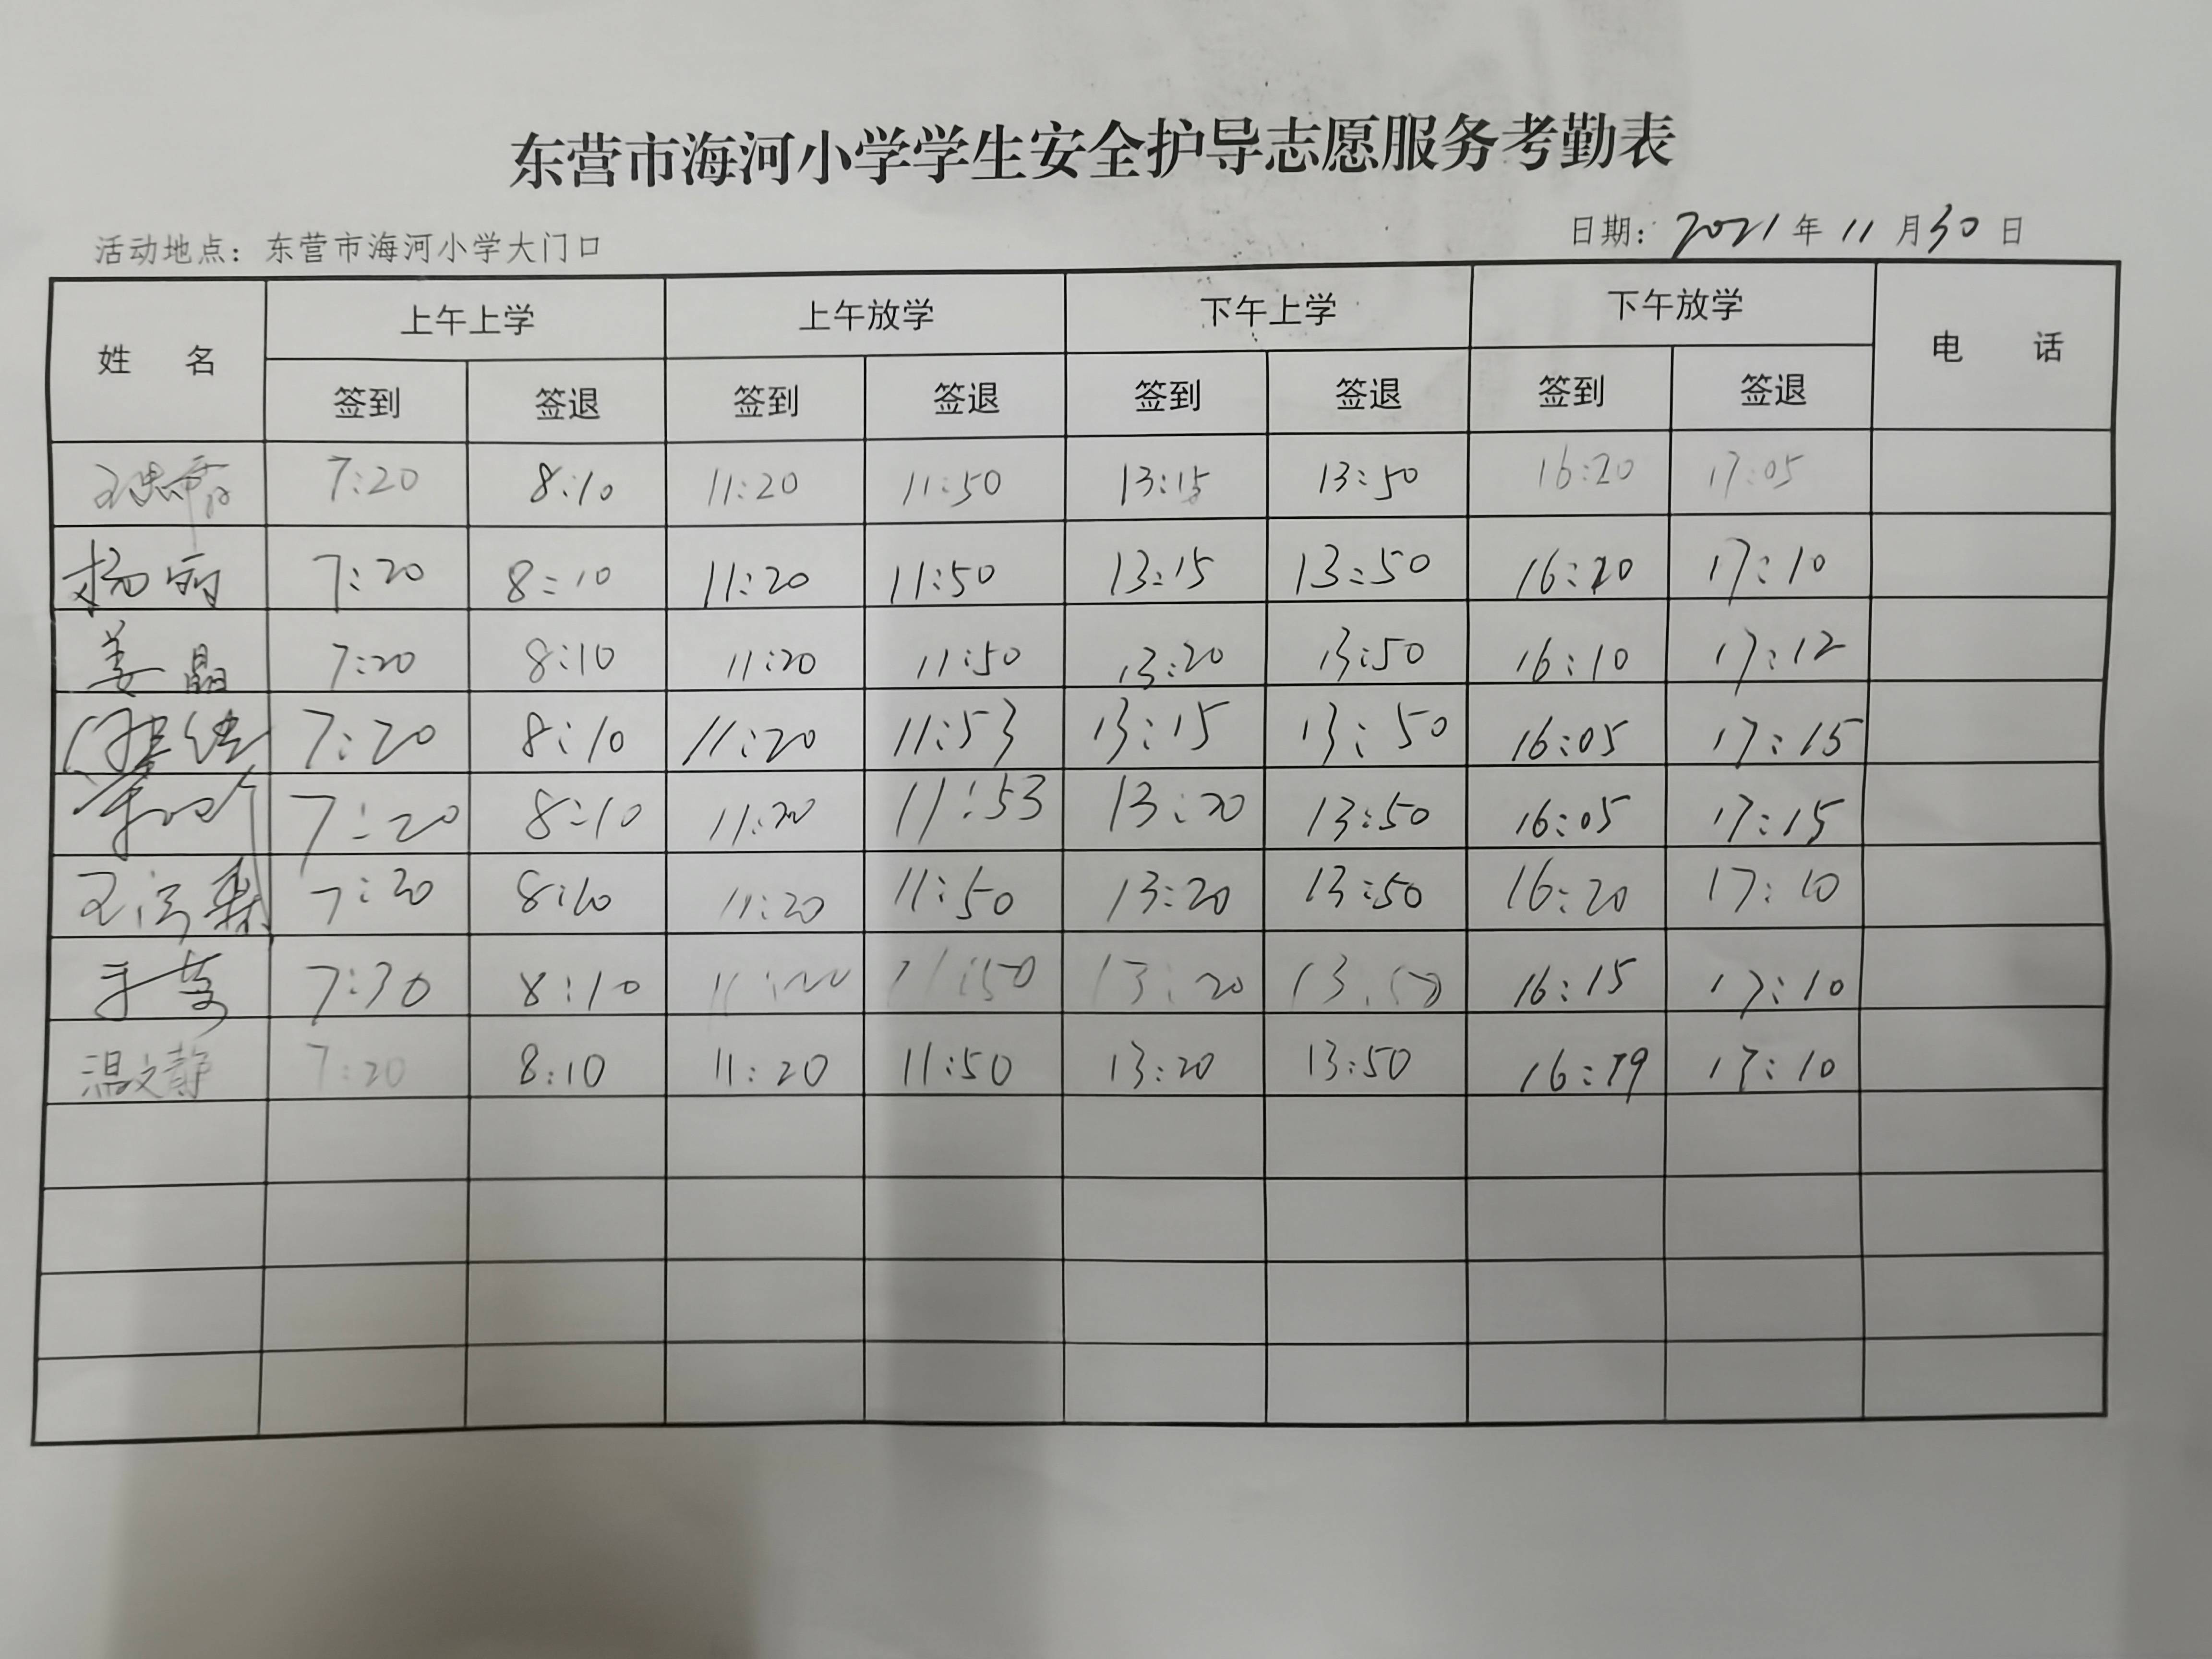 东营市海河小学学生安全护导志愿服务考勤表
活动地点：东营市海河小学大门口 日期：2021年11月30日
姓 名 上午上学 上午放学 下午上学 下午放学 电 话
签到 签退 签到 签退 签到 签退 签到 签退
7:20 8:10 11:20 11:50 13:15 13:50 16:20 17:05
杨丽 7:20 8:10 11:20 11:50 13:15 13:50 16:20 17:10
姜晶 7:20 8:10 11:20 11:50 13:20 13:50 16:10 17:12
7:20 8:10 11:20 11:53 13:15 13:50 16:05 17:15
7:20 8:10 11:20 11:53 13:20 13:50 16:05 17:15
7:20 8:10 11:20 11:50 13:20 13:50 16:20 17:10
7:30 8:10 11:20 11:50 13:20 13:50 16:15 17:10
温文静 7:20 8:10 11:20 11:50 13:20 13:50 16:19 17:10